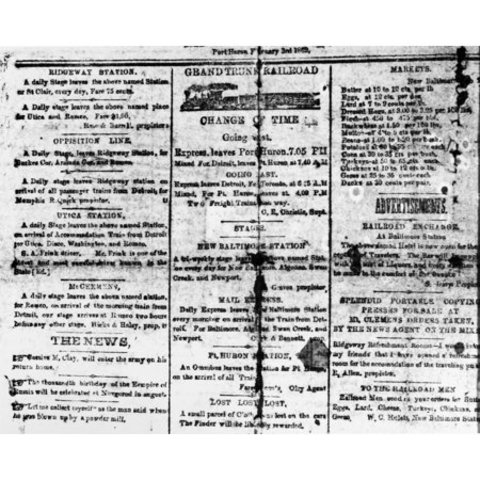 Port Huron, February 3rd 1862,
RIDGEWAY STATION.
A daily Stage leaves the above named Station
for St Clair, every day, Fare 75 cents.
A Daily stage leaves the above named place
for Utica and Romeo, Fare $1,00,
Rose & Burrel, proprietors
OPPISITION LINE,
A Daily Stage, leaves Ridgeway Station, for
Burkes Cor. Armada Cor. and Romeo.
A daily stage leaves Ridgeway Station, on
arrival of all passenger trains from Detroit, for
Memphis R. Quick propietor,
UTICA STATION,
A daily Stage leaves the above named Station,
on arrival of Accomodation Train from Detroit
for Utica, Disco, Washington, and Romeo.
S. A. Frink driver, Mr. Frink is one of the
and most careful drivers known in the
State [Ed.]
McCLEMENS,
A daily stage leaves the above named station,
for Romeo, on arrival of the morning train from
Detroit, our stage arrives at Romeo two hours
before any other stage, Hicks & Halsy, prop,
THE NEWS,
Cassius M, Clay, will enter the army on his
return home.
The thousandth birthday of the Empire of
Russia will be celebrated at Novgorod in august.
Let me collect myself as the man said when
he was blown up by a powder mill,
GRAND TRUNK RAILROAD
CHANGE OF TIME
Going west.
Express, leaves Port Huron, 7,05 PM
Mixed For Detroit, leaves Pt. Huron at 7,40 AM
GOING EAST.
Express leaves Detroit, For Toronto, at 6 15 A.M
Mixed, For Pt. Huron leaves at, 4,00 P.M
Two Freight Trains each way.
C, R, Christie, Supt
STAGES.
NEW BALTIMORE STATION
A tri-weekly stage leaves the above named Station
on every day for New Baltimore, Algonac, Swan
Creek, and Newport,
Graves propietor,
MAIL EXPRESS.
Daily Express leaves New Baltimore Station
every morning on arrival of the Train from Detroit.
For Baltimore, Algonac, Swan Creek, and
Newport, Curtis & Bennett,
Pt, HURON STATION,
An Omnibus leaves the Station for Pt. Huron
on the arrival of all Trains
City Agent
LOST LOST LOST,
A small parcel of Cloth was lost on the cars
The Finder will be liberally rewarded.
MARKETS.
New Baltimore
Butter at 10 to 12 cts, per lb
Eggs, at 12 cts, per doz.
Lard at 7 to 9 cents per lb,
Dressed Hogs, at 3.00 to 3.25 per 100 lbs,
Mutton at 4 to 5 cts per lb.
Beans at 1,00 per bush.
Potatoes at 30 to 35 cts. per bush.
Corn at 30 to 35 cts per bush.
Turkeys at 50 to 65 cts each.
Chickens at 10 to 12 cts each.
Geese at 25 to 35 cents each.
Ducks at 30 cents per pair.
ADVERTISEMENTS.
RAILROAD EXCHANGE.
At Baltimore Station
The above named Hotel is now open for the
of Travelers. The Bar will
Liquors, and every
to the comfort of the
S. Graves Propietor
SPLENDID PORTABLE COPYING
PRESSES FOR SALE AT
Mt, CLEMENS ORDERS TAKEN,
BY THE NEWS AGENT ON THE MIXED
Ridgeway Refreshment Rooms
my friends that I have opened a refreshment
room for the accomodation of the traveling public
P. Allen, propietor,
TO THE RAILROAD MEN
Railroad Men send in your orders for Butter,
Eggs, Lard, Cheese, Turkeys, Chickens, and
Geese, W. C, Hulets, New Baltimore Station